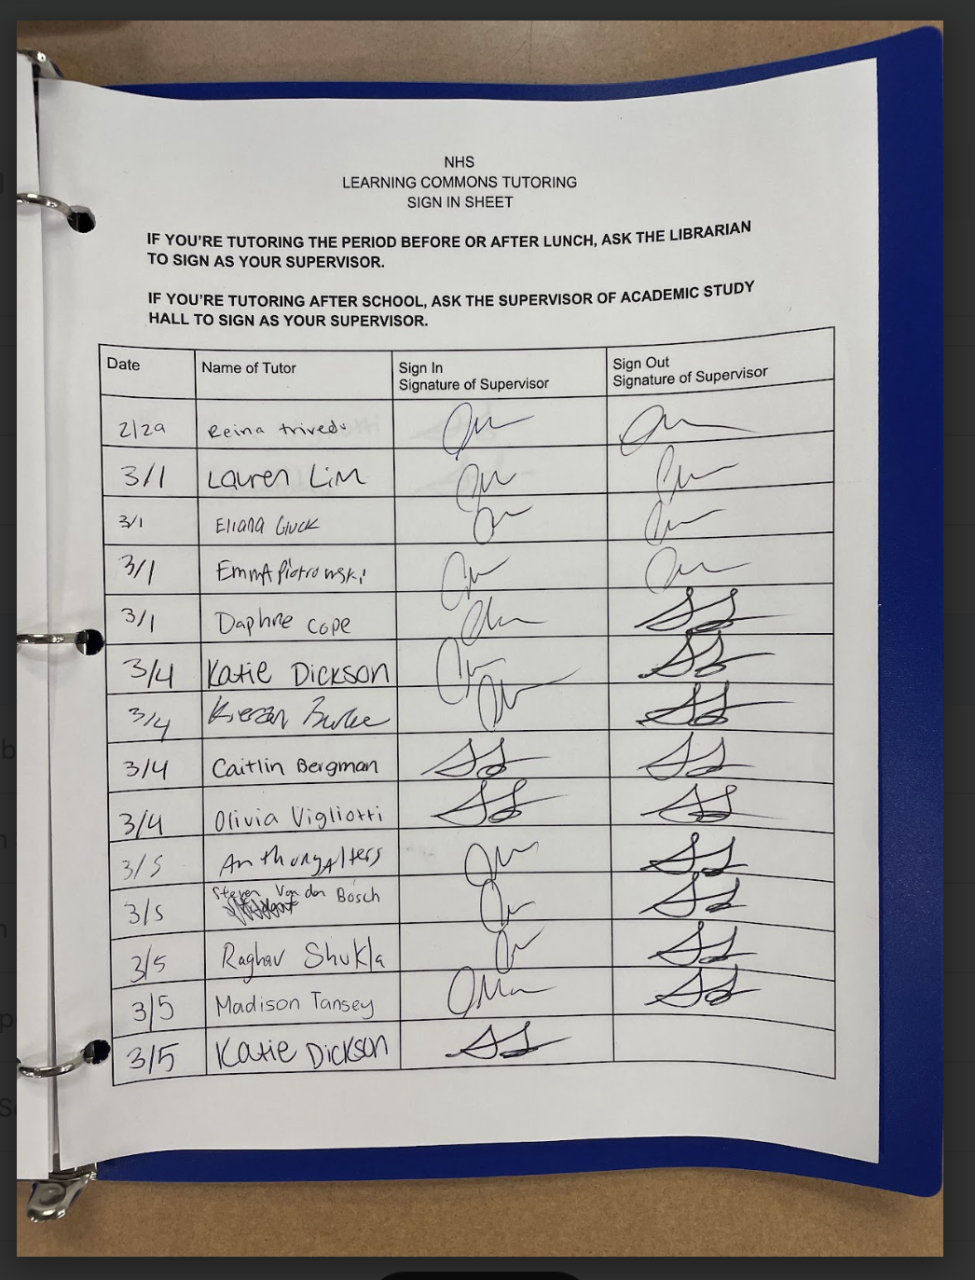 NHS
LEARNING COMMONS TUTORING
SIGN IN SHEET
IF YOU'RE TUTORING THE PERIOD BEFORE OR AFTER LUNCH, ASK THE LIBRARIAN
TO SIGN AS YOUR SUPERVISOR.
IF YOU'RE TUTORING AFTER SCHOOL, ASK THE SUPERVISOR OF ACADEMIC STUDY
HALL TO SIGN AS YOUR SUPERVISOR.
Date Name of Tutor Sign In Sign Out
Signature of Supervisor Signature of Supervisor
2/29 Reina trivedi
3/1 Lauren Lim
3/1 Eliana Gluck
3/1 Emma Piotrowski
3/1 Daphne cope
3/4 Katie Dickson
3/4 Kieran Burke
3/4 Caitlin Bergman
3/4 Olivia Vigliotti
3/5 Anthony Alfers
3/5 Steven Van den Bosch
3/5 Raghav Shukla
3/5 Madison Tansey
3/5 Katie Dickson